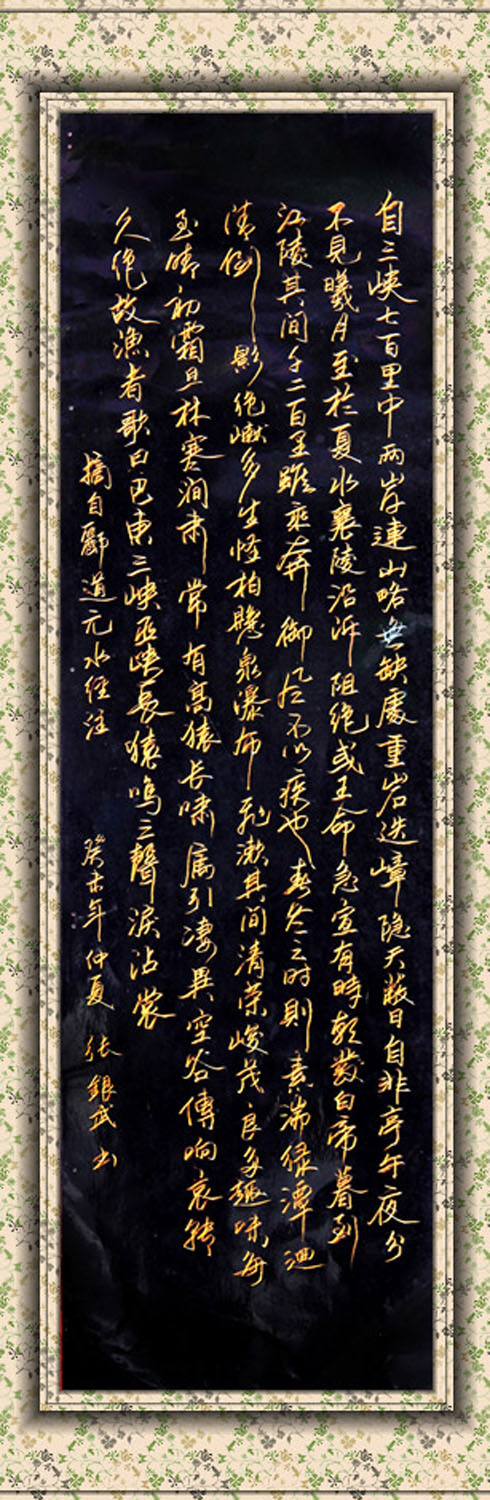 自三峡七百里中两岸连山略無缺處重岩迭嶂隐天蔽日自非亭午夜分
不見曦月至於夏水襄陵沿泝阻绝或王命急宣有時朝發白帝暮到
江陵其间千二百里雖乘奔御风不以疾也春冬之时則素湍绿潭迴
清倒影绝巘多生怪柏懸泉瀑布飛漱其间清荣峻茂良多趣味每
至晴初霜旦林寒涧肃常有高猿长啸属引凄異空谷傳响哀转
久绝故漁者歌曰巴東三峡巫峡長猿鳴三聲淚沾裳
摘自酈道元水经注
癸未年仲夏 张銀武书